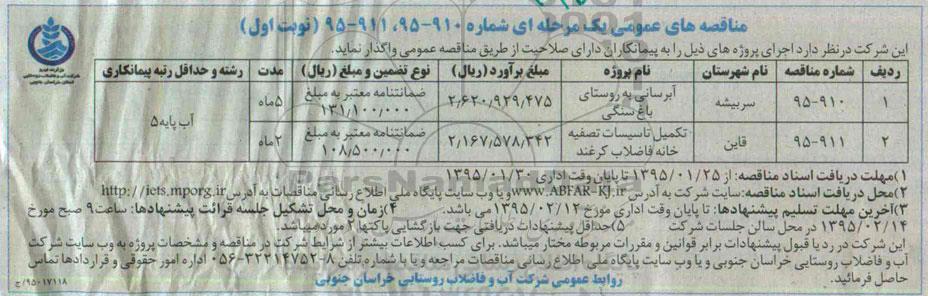 مناقصه های عمومی یک مرحله ای شماره ۹۱۰-۹۵، ۹۱۱-۹۵ (نوبت اول)
این شرکت درنظر دارد اجرای پروژه های ذیل را به پیمانکاران دارای صلاحیت از طریق مناقصه عمومی واگذار نماید.
ردیف شماره مناقصه نام شهرستان نام پروژه مبلغ برآورد (ریال) نوع تضمین و مبلغ (ریال) مدت رشته و حداقل رتبه پیمانکاری
۱ ۹۵-۹۱۰ سربیشه آبرسانی به روستای باغ سنگی ۲٫۶۲۰٫۹۲۹٫۴۷۵ ضمانتنامه معتبر به مبلغ ۱۳۱٫۱۰۰٫۰۰۰ ۵ماه آب پایه۵
۲ ۹۵-۹۱۱ قاین تکمیل تاسیسات تصفیه خانه فاضلاب کرغند ۲٫۱۶۷٫۵۷۸٫۳۴۲ ضمانتنامه معتبر به مبلغ ۱۰۸٫۵۰۰٫۰۰۰ ۲ماه
۱)مهلت دریافت اسناد مناقصه: از ۱۳۹۵/۰۱/۲۵ تا پایان وقت اداری ۱۳۹۵/۰۱/۳۰
۲)محل دریافت اسناد مناقصه: سایت شرکت به آدرس www.ABFAR-KJ.ir ویا وب سایت پایگاه ملی اطلاع رسانی مناقصات به آدرس http://iets.mporg.ir
۳)آخرین مهلت تسلیم پیشنهادها: تا پایان وقت اداری مورخ ۱۳۹۵/۰۲/۱۲ می باشد. ۴)زمان و محل تشکیل جلسه قرائت پیشنهادها: ساعت۹ صبح مورخ
۱۳۹۵/۰۲/۱۴ در محل سالن جلسات شرکت ۵)حداقل پیشنهادات دریافتی جهت بازگشایی پاکتها ۲ مورد میباشد.
این شرکت در رد یا قبول پیشنهادات برابر قوانین و مقررات مربوطه مختار میباشد. برای کسب اطلاعات بیشتر از شرایط شرکت در مناقصه و مشخصات پروژه به وب سایت شرکت
آب و فاضلاب روستایی خراسان جنوبی و یا وب سایت پایگاه ملی اطلاع رسانی مناقصات مراجعه و یا با شماره تلفن ۸-۳۲۲۱۴۷۵۲-۰۵۶ اداره امور حقوقی و قراردادها تماس
حاصل فرمائید.
روابط عمومی شرکت آب و فاضلاب روستایی خراسان جنوبی
۹۵۰۱۷۱۱۸/ج